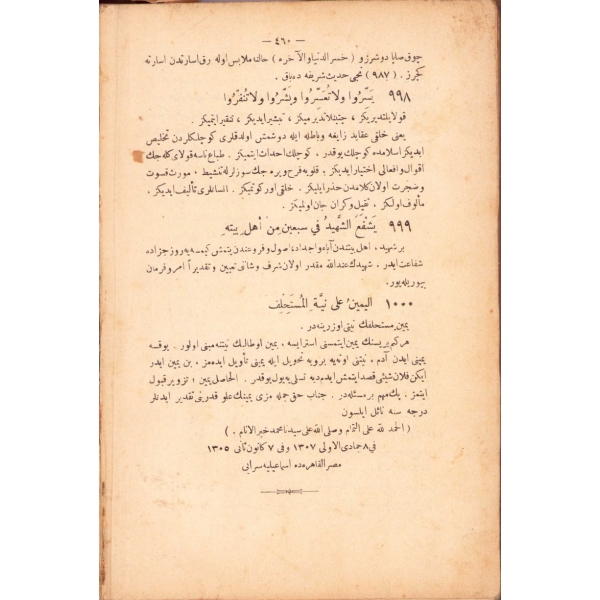 — ٤٦٠ —
چوق صلایا دوشرز و ( خسر الدنیا والآخره ) حالنه ملابس اوله رق اسارتدن اسارته
کچرز . ( ٩٨٧ ) نجی حدیث شریفه ده باق .
٩٩٨ یَسِّرُوا وَلا تُعَسِّرُوا وَبَشِّرُوا وَلا تُنَفِّرُوا
قولایلندیریکز ، چتینلاندیرمیکز ، تبشیر ایدیکز ، تنفیر ایتمیکز .
یعنی خلقی عقاید زایغه وباطله ایله دوشمش اولدقلری کوچلکلردن تخلیص
ایدیکز اسلامده کوچلك یوقدر ، کوچلك احداث ایتمیکز . طباع ناسه قولای کله جك
اقوال وافعالی اختیار ایدیکز . قلوبه فرح ویره جك سوزلرله تنشیط ، مورث قسوت
وضجرت اولان کلامدن حذر ایلیکز . خلقی اورکوتمیکز . انسانلری تألیف ایدیکز ،
مألوف اولکز ، ثقیل وکران جان اولمیکز .
٩٩٩ یَشْفَعُ الشَّهیدُ فی سَبعینَ مِنْ أهلِ بیتِهِ
بر شهید ، اهل بیتندن آباء واجداد واصول وفروعندن یتمش کیمسه یه روز جزاده
شفاعت ایدر . شهیدك عندالله مقدر اولان شرف وشانی تعیین وتقدیراً امر وفرمان
بیوریله یور .
١٠٠٠ الیمینُ علی نیَّةِ المُستَحلِف
یمین مستحلفك نیتی اوزرینه در .
هرکم بریسنك یمین ایتمسنی استرایسه ، یمین اوطالبك نیتنه مبنی اولور . یوقسه
یمینی ایدن آدم ، نیتنی اوته یه برویه تحویل ایله یمینی تأویل ایده مز ، بن یمین ایدر
ایکن فلان شیئی قصد ایتمش ایدم دیه تسلی یه یول یوقدر . الحاصل یمین ؛ تزویر قبول
ایتمز . پك مهم بر مسئله در . جناب حق جمله مزی یمینك علو قدرینی تقدیر ایدنلر
درجه سنه نائل ایلسون
( الحمد لله علی التمام وصلی الله علی سیدنا محمد خیر الانام . )
فی ٨ جمادی الاولی ١٣٠٧ وفی ٧ کانون ثانی ١٣٠٥
مصر القاهره ده اسماعیلیه سرایی